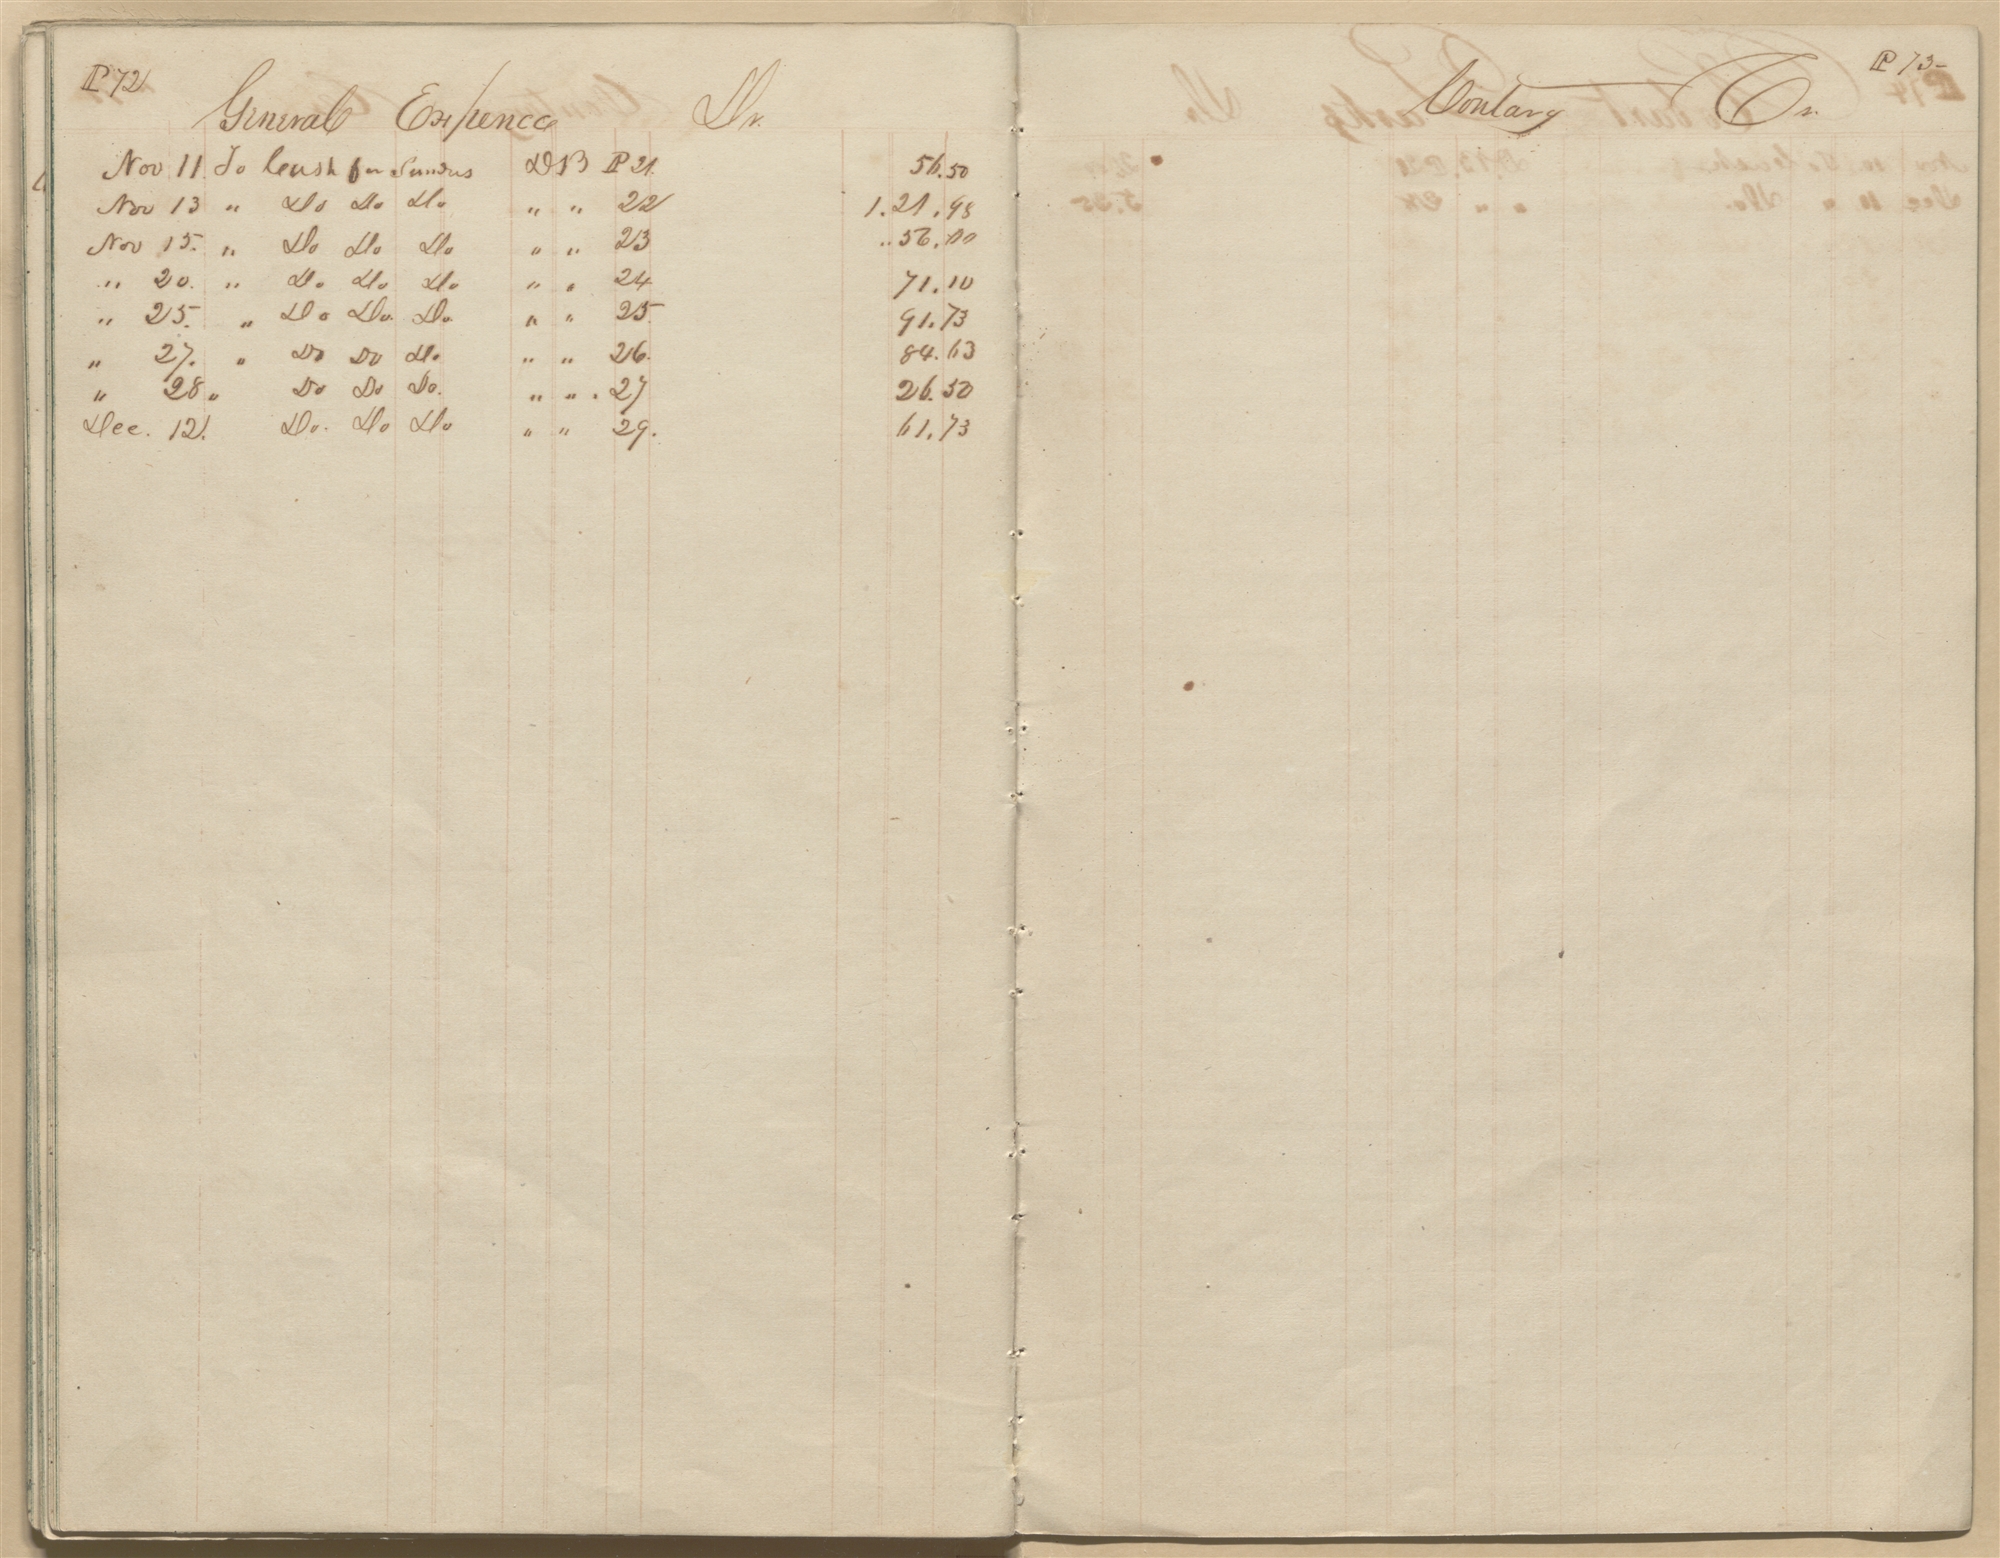 P 72
General Expence Dr.
Nov 11 To Cash for Sundres D B P 21.
56.50
Nov 13 " Do Do Do " " 22
1.21.98
Nov 15. " Do Do Do " " 23
.. 56.00
" 20. " Do Do Do " " 24
71.10
" 25. " Do Do. Do. " " 25.
91.73
" 27. " Do Do Do. " " 26.
84.63
" 28 " Do Do Do. " " . 27
26.50
Dec. 12. Do. Do Do " " 29.
61.73
P 73-
Contary Cr.